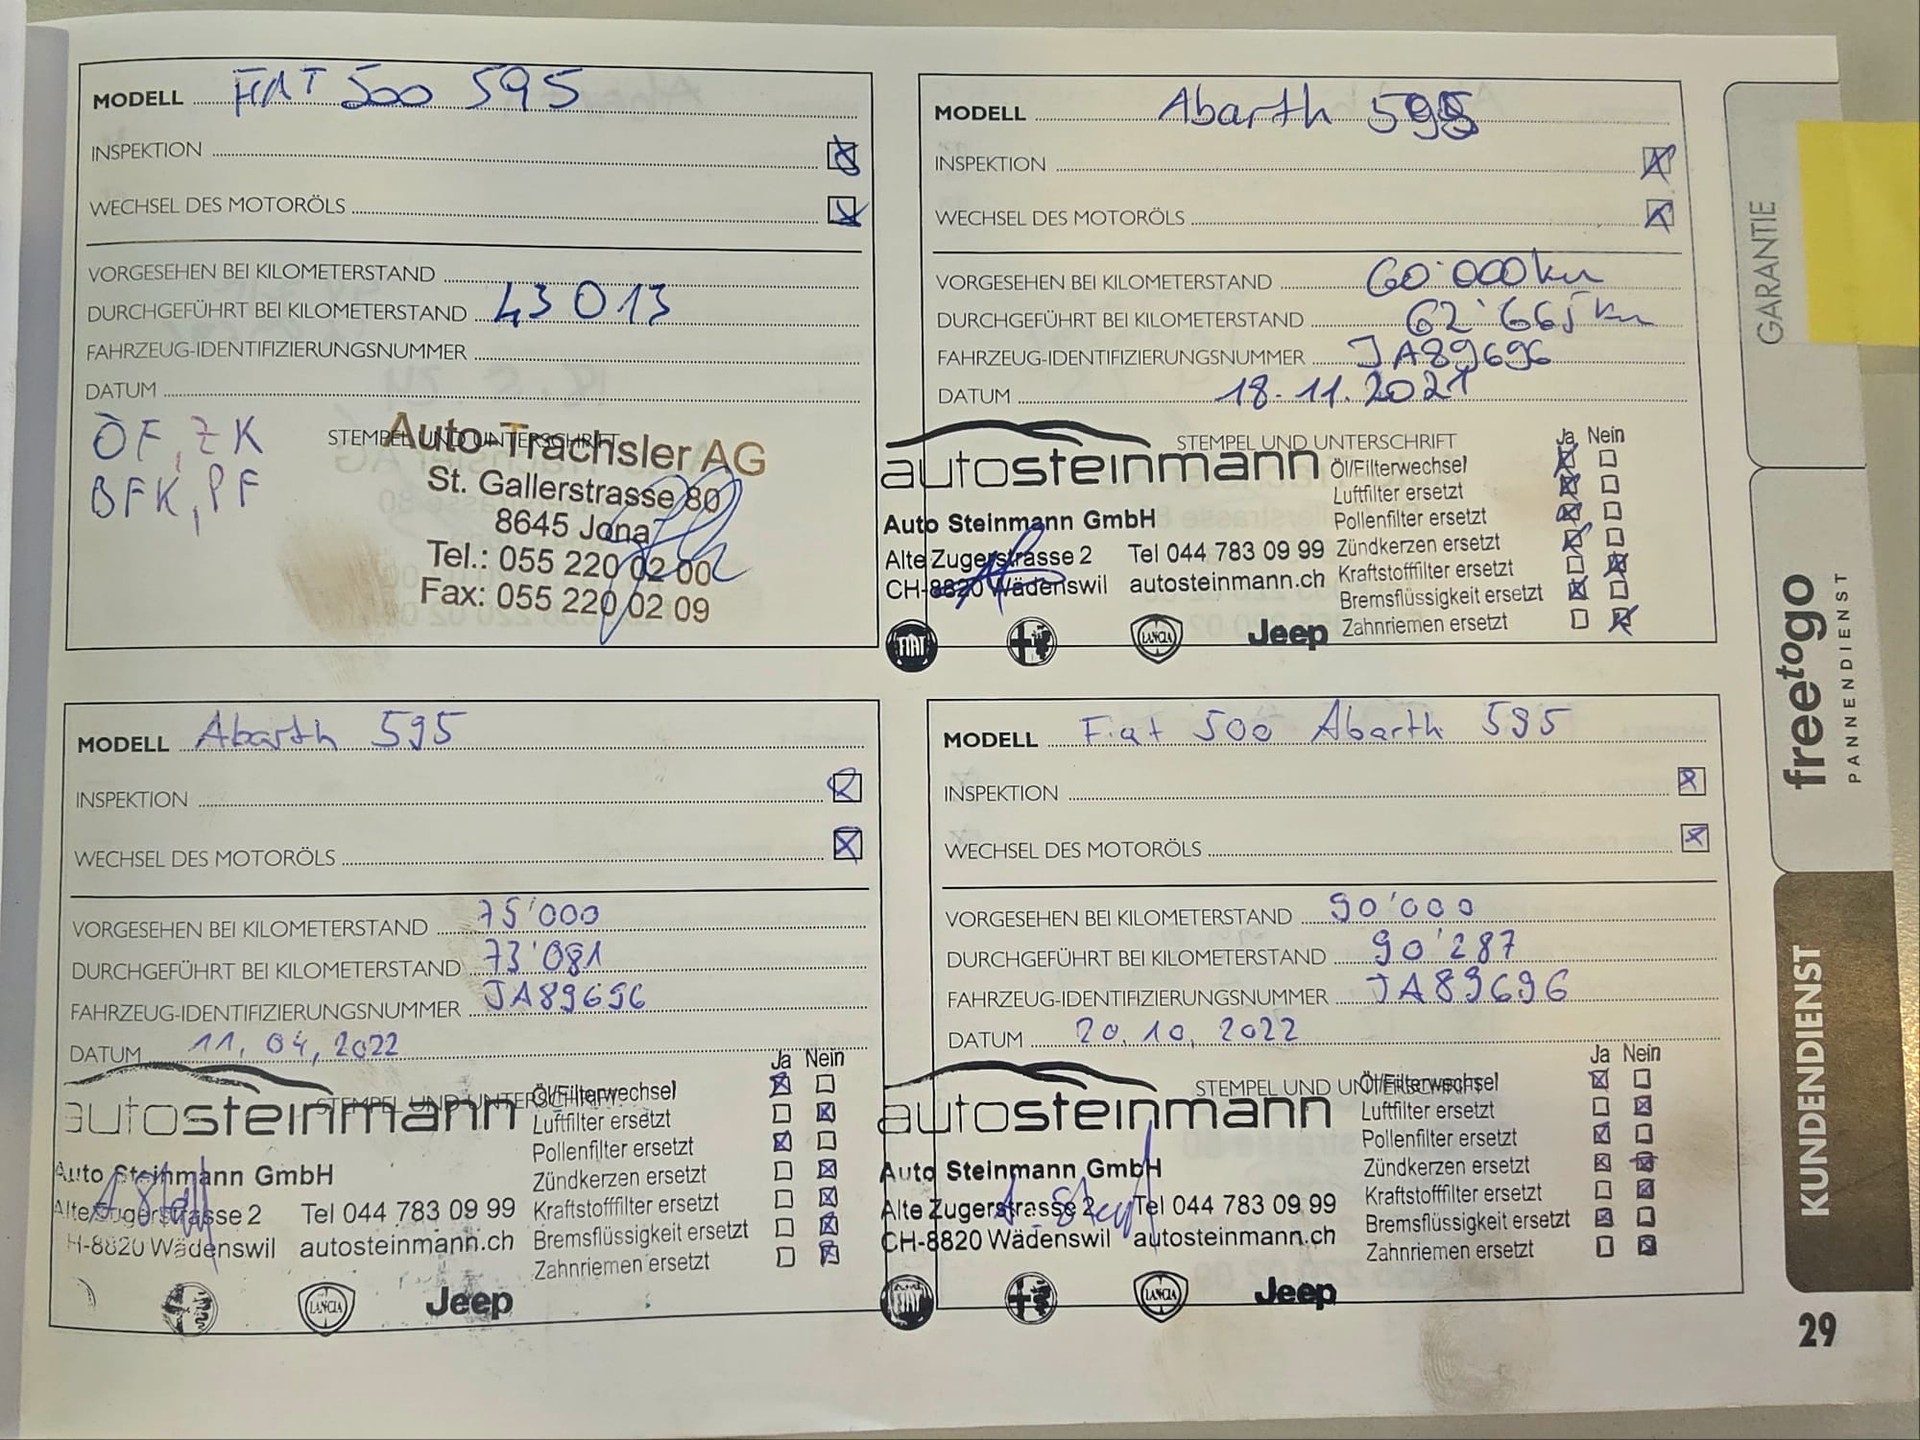 MODELL FIAT 500 595
INSPEKTION
WECHSEL DES MOTORÖLS
VORGESEHEN BEI KILOMETERSTAND
DURCHGEFÜHRT BEI KILOMETERSTAND 43013
FAHRZEUG-IDENTIFIZIERUNGSNUMMER
DATUM
ÖF, ZK
BFK, PF
STEMPEL UND UNTERSCHRIFT
Auto Trachsler AG
St. Gallerstrasse 80
8645 Jona
Tel.: 055 220 02 00
Fax: 055 220 02 09
MODELL Abarth 595
INSPEKTION
WECHSEL DES MOTORÖLS
VORGESEHEN BEI KILOMETERSTAND 60'000 km
DURCHGEFÜHRT BEI KILOMETERSTAND 62'665 km
FAHRZEUG-IDENTIFIZIERUNGSNUMMER JA89696
DATUM 18.11.2021
STEMPEL UND UNTERSCHRIFT
Ja Nein
autosteinmann
Auto Steinmann GmbH
Alte Zugerstrasse 2 Tel 044 783 09 99
CH-8820 Wädenswil autosteinmann.ch
Öl/Filterwechsel
Luftfilter ersetzt
Pollenfilter ersetzt
Zündkerzen ersetzt
Kraftstofffilter ersetzt
Bremsflüssigkeit ersetzt
Zahnriemen ersetzt
FIAT LANCIA Jeep
MODELL Abarth 595
INSPEKTION
WECHSEL DES MOTORÖLS
VORGESEHEN BEI KILOMETERSTAND 75'000
DURCHGEFÜHRT BEI KILOMETERSTAND 73'081
FAHRZEUG-IDENTIFIZIERUNGSNUMMER JA89696
DATUM 11.04.2022
STEMPEL UND UNTERSCHRIFT
Ja Nein
autosteinmann
Auto Steinmann GmbH
Alte Zugerstrasse 2 Tel 044 783 09 99
H-8820 Wädenswil autosteinmann.ch
Öl/Filterwechsel
Luftfilter ersetzt
Pollenfilter ersetzt
Zündkerzen ersetzt
Kraftstofffilter ersetzt
Bremsflüssigkeit ersetzt
Zahnriemen ersetzt
LANCIA Jeep
MODELL Fiat 500 Abarth 595
INSPEKTION
WECHSEL DES MOTORÖLS
VORGESEHEN BEI KILOMETERSTAND 90'000
DURCHGEFÜHRT BEI KILOMETERSTAND 90'287
FAHRZEUG-IDENTIFIZIERUNGSNUMMER JA89696
DATUM 20.10.2022
STEMPEL UND UNTERSCHRIFT
Ja Nein
autosteinmann
Auto Steinmann GmbH
Alte Zugerstrasse 2 Tel 044 783 09 99
CH-8820 Wädenswil autosteinmann.ch
Öl/Filterwechsel
Luftfilter ersetzt
Pollenfilter ersetzt
Zündkerzen ersetzt
Kraftstofffilter ersetzt
Bremsflüssigkeit ersetzt
Zahnriemen ersetzt
FIAT LANCIA Jeep
GARANTIE
freetogo
PANNENDIENST
KUNDENDIENST
29